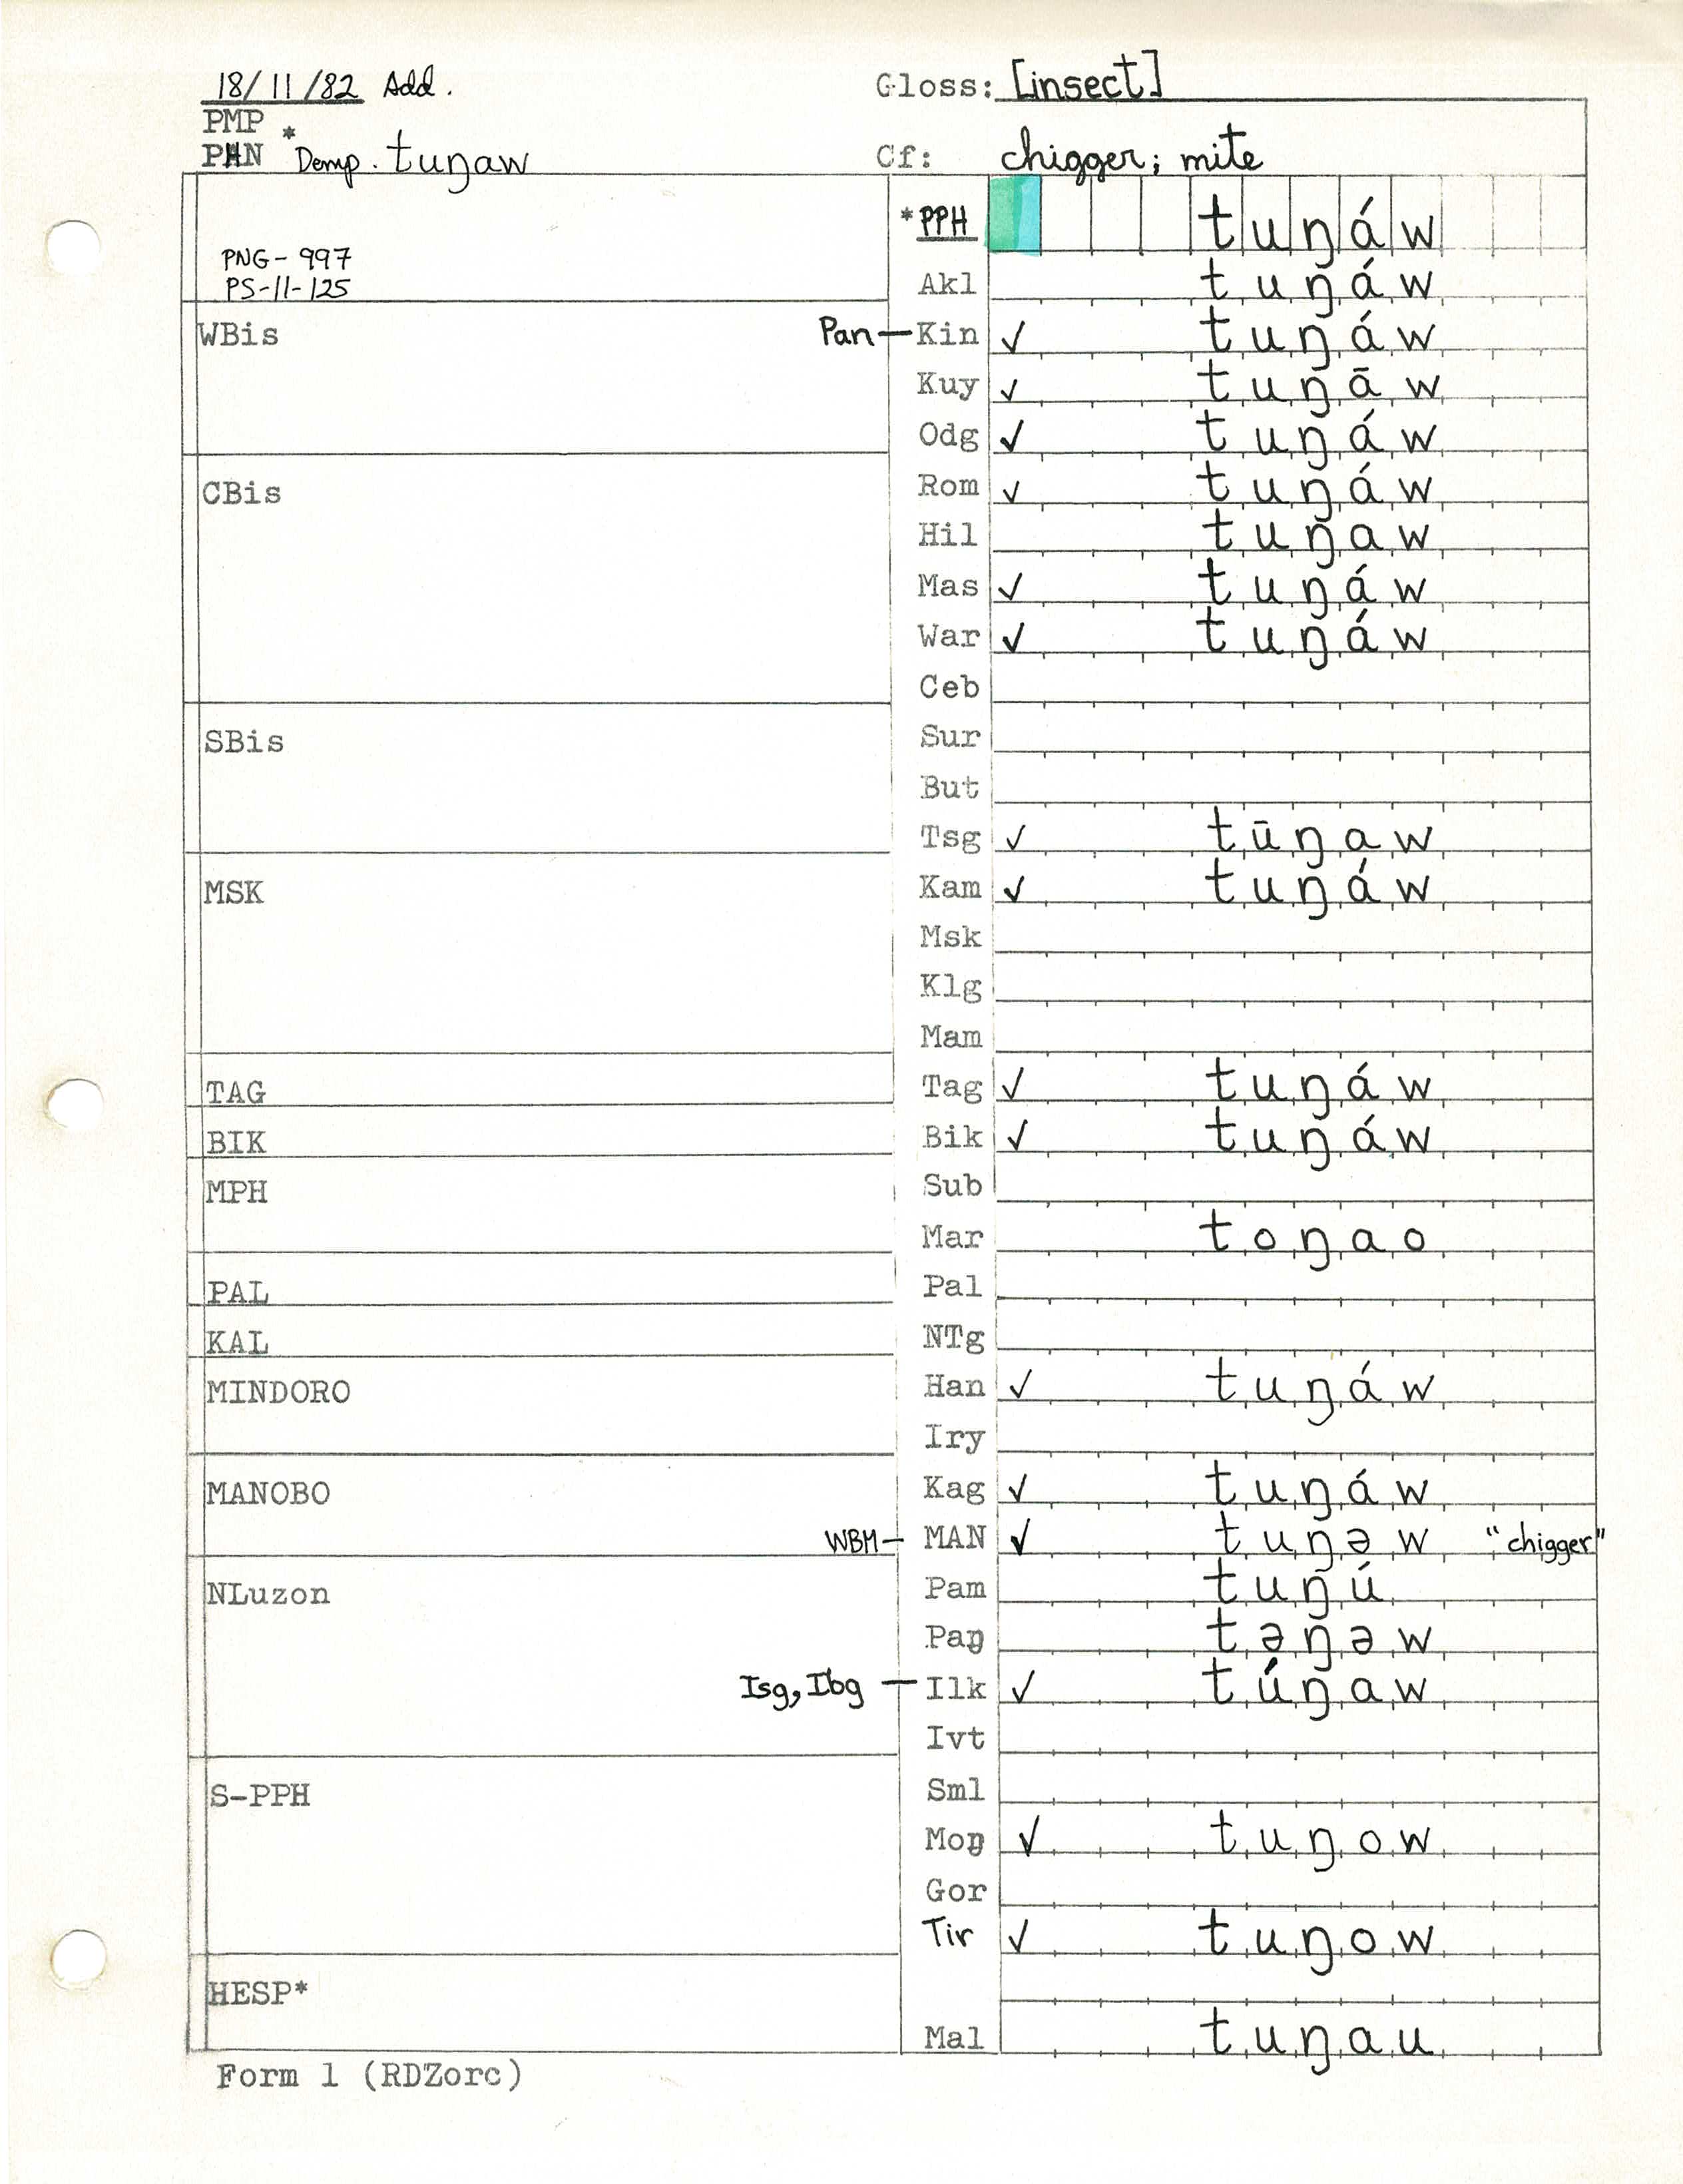 18/11/82 Add. Gloss: [insect]
PMP
PAN *Demp. tuŋaw Cf: chigger; mite
*PPH tuŋáw
PNG-997
PS-11-125
Akl tuŋáw
WBis Pan — Kin ✓ tuŋáw
Kuy ✓ tuŋāw
Odg ✓ tuŋáw
CBis Rom ✓ tuŋáw
Hil tuŋaw
Mas ✓ tuŋáw
War ✓ tuŋáw
Ceb
SBis Sur
But
Tsg ✓ tūŋaw
MSK Kam ✓ tuŋáw
Msk
Klg
Mam
TAG Tag ✓ tuŋáw
BIK Bik ✓ tuŋáw
MPH Sub
Mar toŋao
PAL Pal
KAL NTg
MINDORO Han ✓ tuŋáw
Iry
MANOBO Kag ✓ tuŋáw
WBM — MAN ✓ tuŋəw "chigger"
NLuzon Pam tuŋú
Paŋ təŋəw
Isg, Ibg — Ilk ✓ túŋaw
Ivt
S-PPH Sml
Moŋ ✓ tuŋow
Gor
Tir ✓ tuŋow
HESP*
Mal tuŋau
Form 1 (RDZorc)